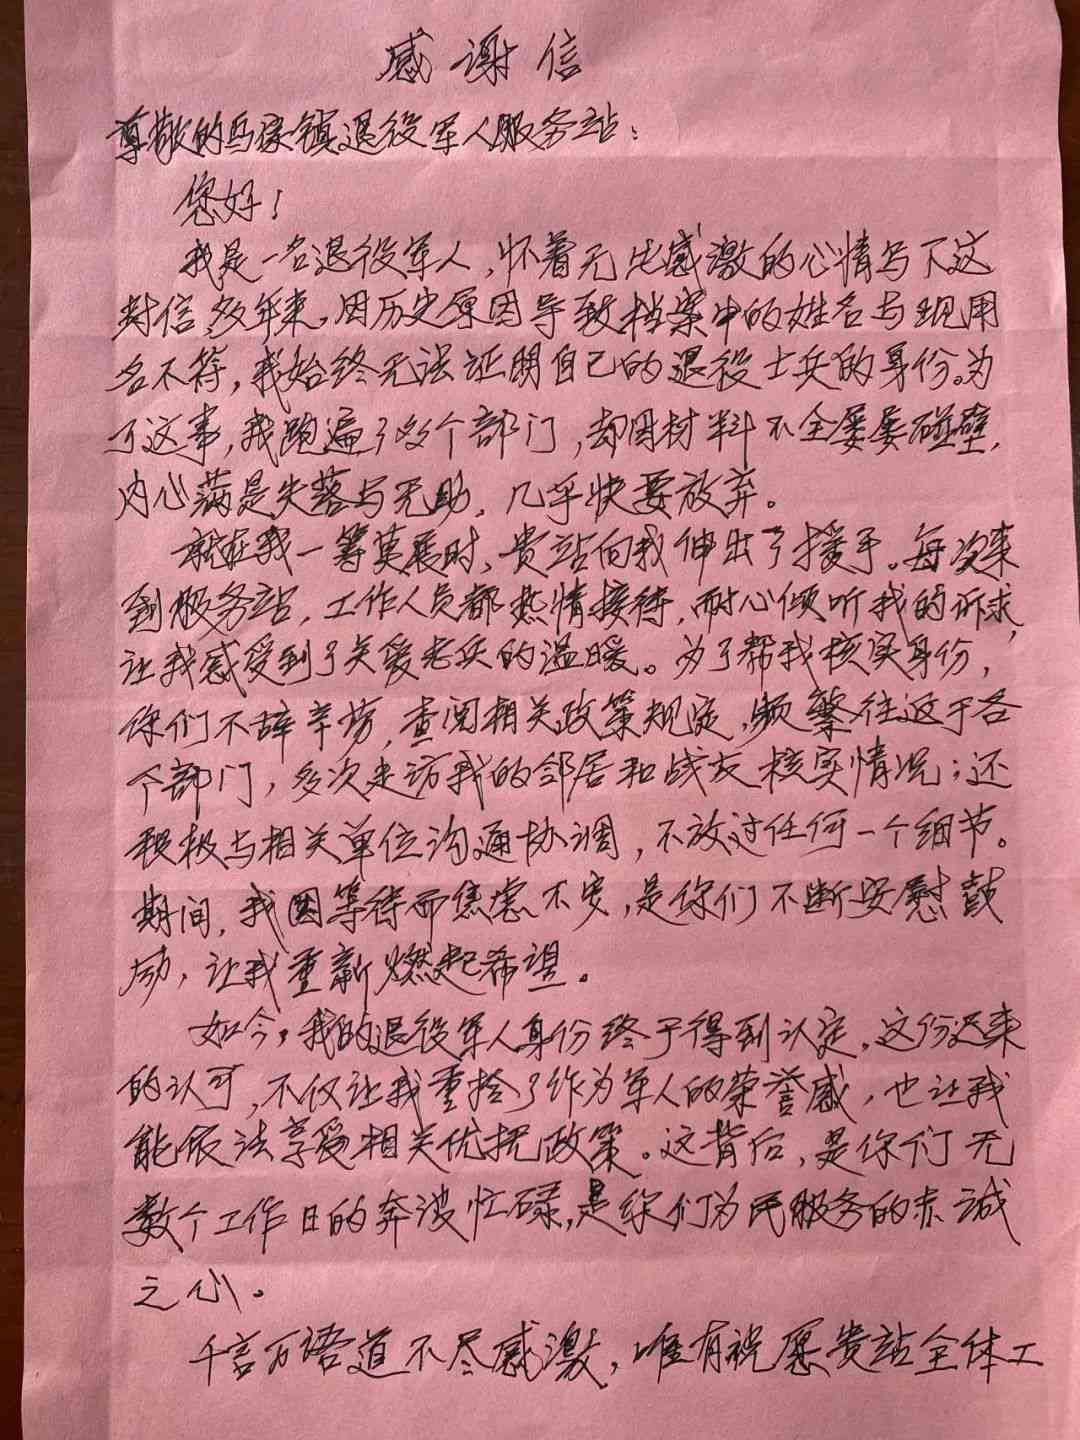 感谢信
尊敬的马家镇退役军人服务站：
您好！
我是一名退役军人，怀着无比感激的心情写下这
封信。多年来，因历史原因导致档案中的姓名与现用
名不符，我始终无法证明自己的退役士兵的身份。为
了这事，我跑遍了多个部门，却因材料不全屡屡碰壁，
内心满是失落与无助，几乎快要放弃。
就在我一筹莫展时，贵站向我伸出了援手。每次来
到服务站，工作人员都热情接待，耐心倾听我的诉求，
让我感受到了关爱老兵的温暖。为了帮我核实身份，
你们不辞辛劳，查阅相关政策规定，频繁往返于各
个部门，多次走访我的邻居和战友核实情况；还
积极与相关单位沟通协调，不放过任何一个细节。
期间，我因等待而焦虑不安，是你们不断安慰鼓
励，让我重新燃起希望。
如今，我的退役军人身份终于得到认定，这份迟来
的认可，不仅让我重拾了作为军人的荣誉感，也让我
能依法享受相关优抚政策。这背后，是你们无
数个工作日的奔波忙碌，是你们为民服务的赤诚
之心。
千言万语道不尽感激，唯有祝愿贵站全体工